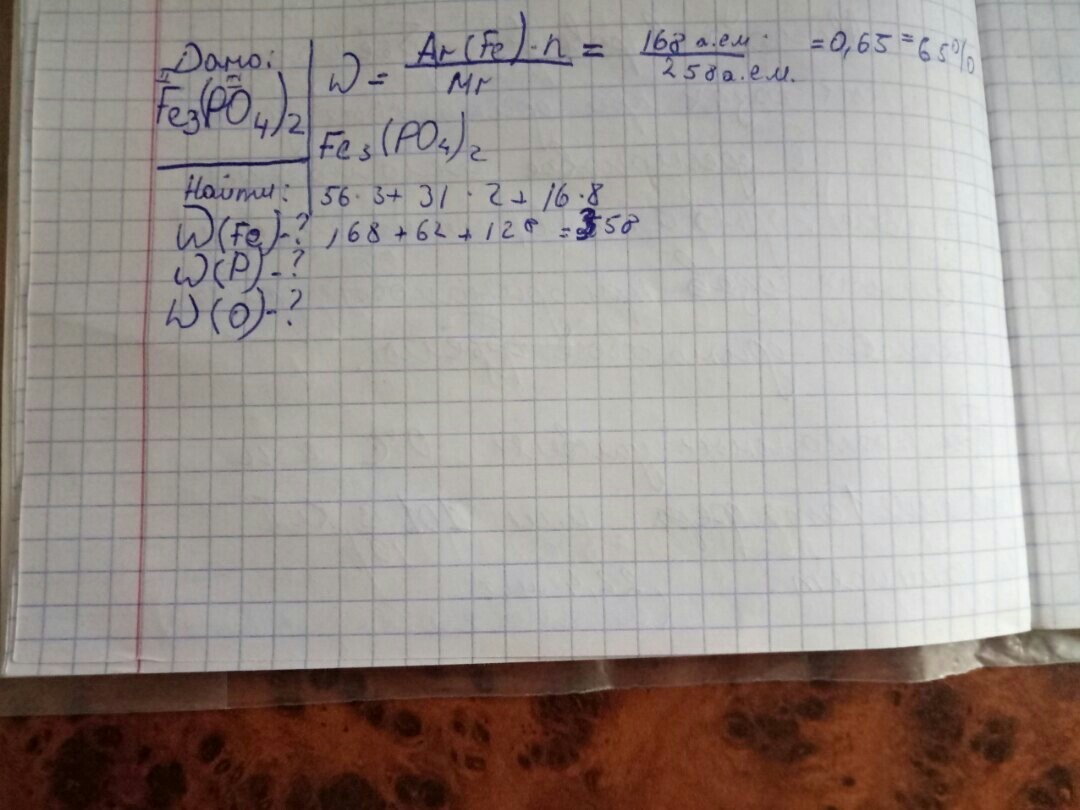 Дано:
II III
Fe₃(PO₄)₂
Найти:
W(Fe)-?
W(P)-?
W(O)-?
W = Ar(Fe)·n / Mr = 168 а.ем. / 258 а.ем. = 0,65 = 65%
Fe₃(PO₄)₂
56·3+31·2+16·8
168+62+128=358